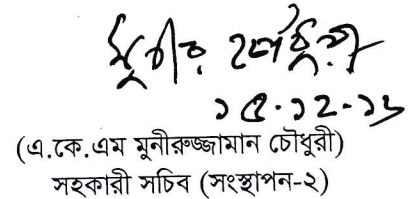 মুনীর চৌধুরী
১৫.১২.১৬
(এ.কে.এম মুনীরুজ্জামান চৌধুরী)
সহকারী সচিব (সংস্থাপন-২)